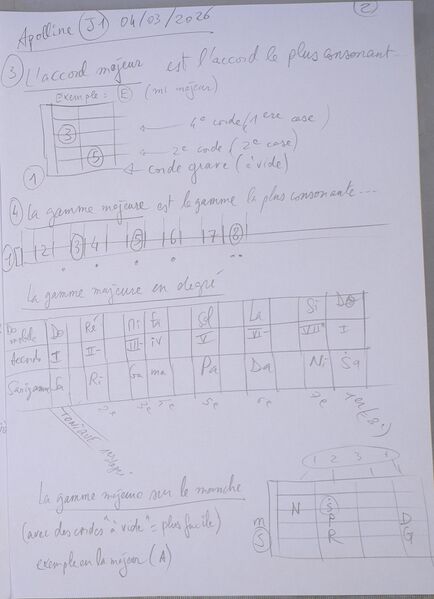 Apolline J1 04/03/2026
2
3 L'accord majeur est l'accord le plus consonant
Exemple: E (mi majeur)
3
4e corde (1ere case)
2e corde (2e case)
5
corde grave (à vide)
1
4 La gamme majeure est la gamme la plus consonante...
1 2 3 4 5 6 7 8
La gamme majeure en degré
Do mobile Do Ré Mi Fa Sol La Si Do
accords I II- III- IV V VI- VII° I
Sargam Sa Ri Ga ma Pa Da Ni Sa
2e 3e 4e 5e 6e 7e
TONIQUE
La gamme majeure sur le manche
(avec des cordes "à vide" = plus facile)
exemple en la majeur (A)
1 2 3 4
N S D
P
m
S R G